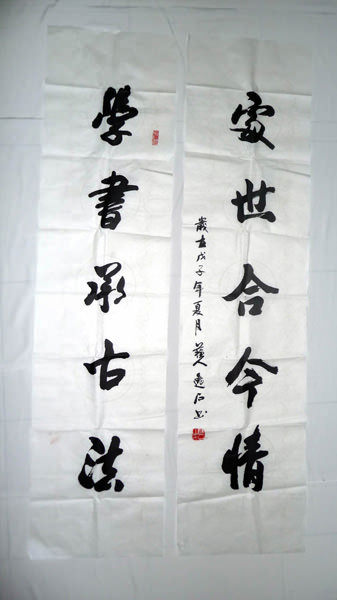 處世合今情
歲在戊子年夏月
學書承古法